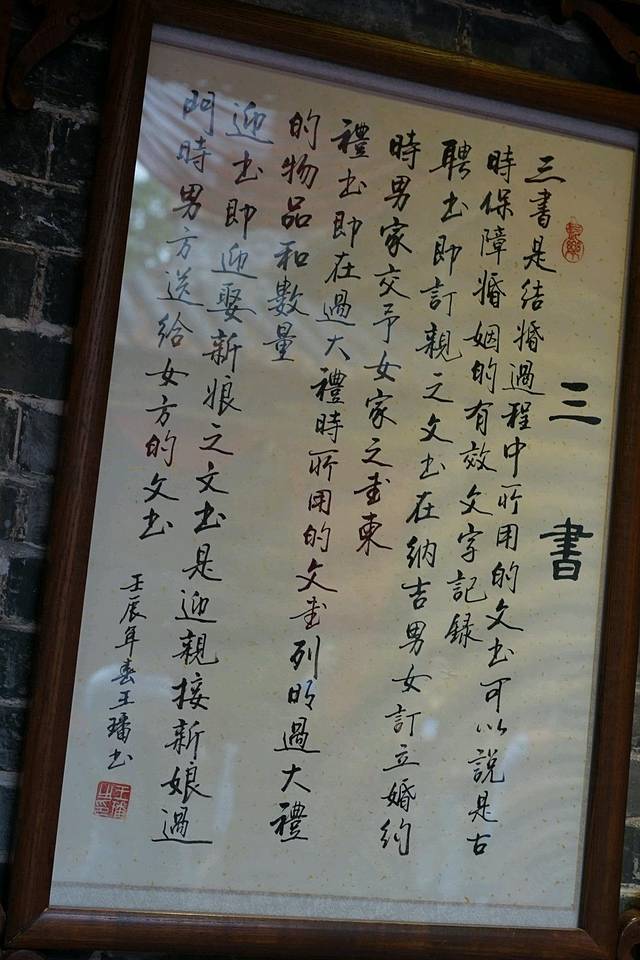 三書
三書是结婚過程中所用的文书可以說是古
時保障婚姻的有效文字記録
聘书即訂親之文书在纳吉男女訂立婚约
時男家交予女家之書柬
禮书即在過大禮時所用的文書列明過大禮
的物品和數量
迎书即迎娶新娘之文书是迎親接新娘過
門時男方送给女方的文书
壬辰年春王璠书